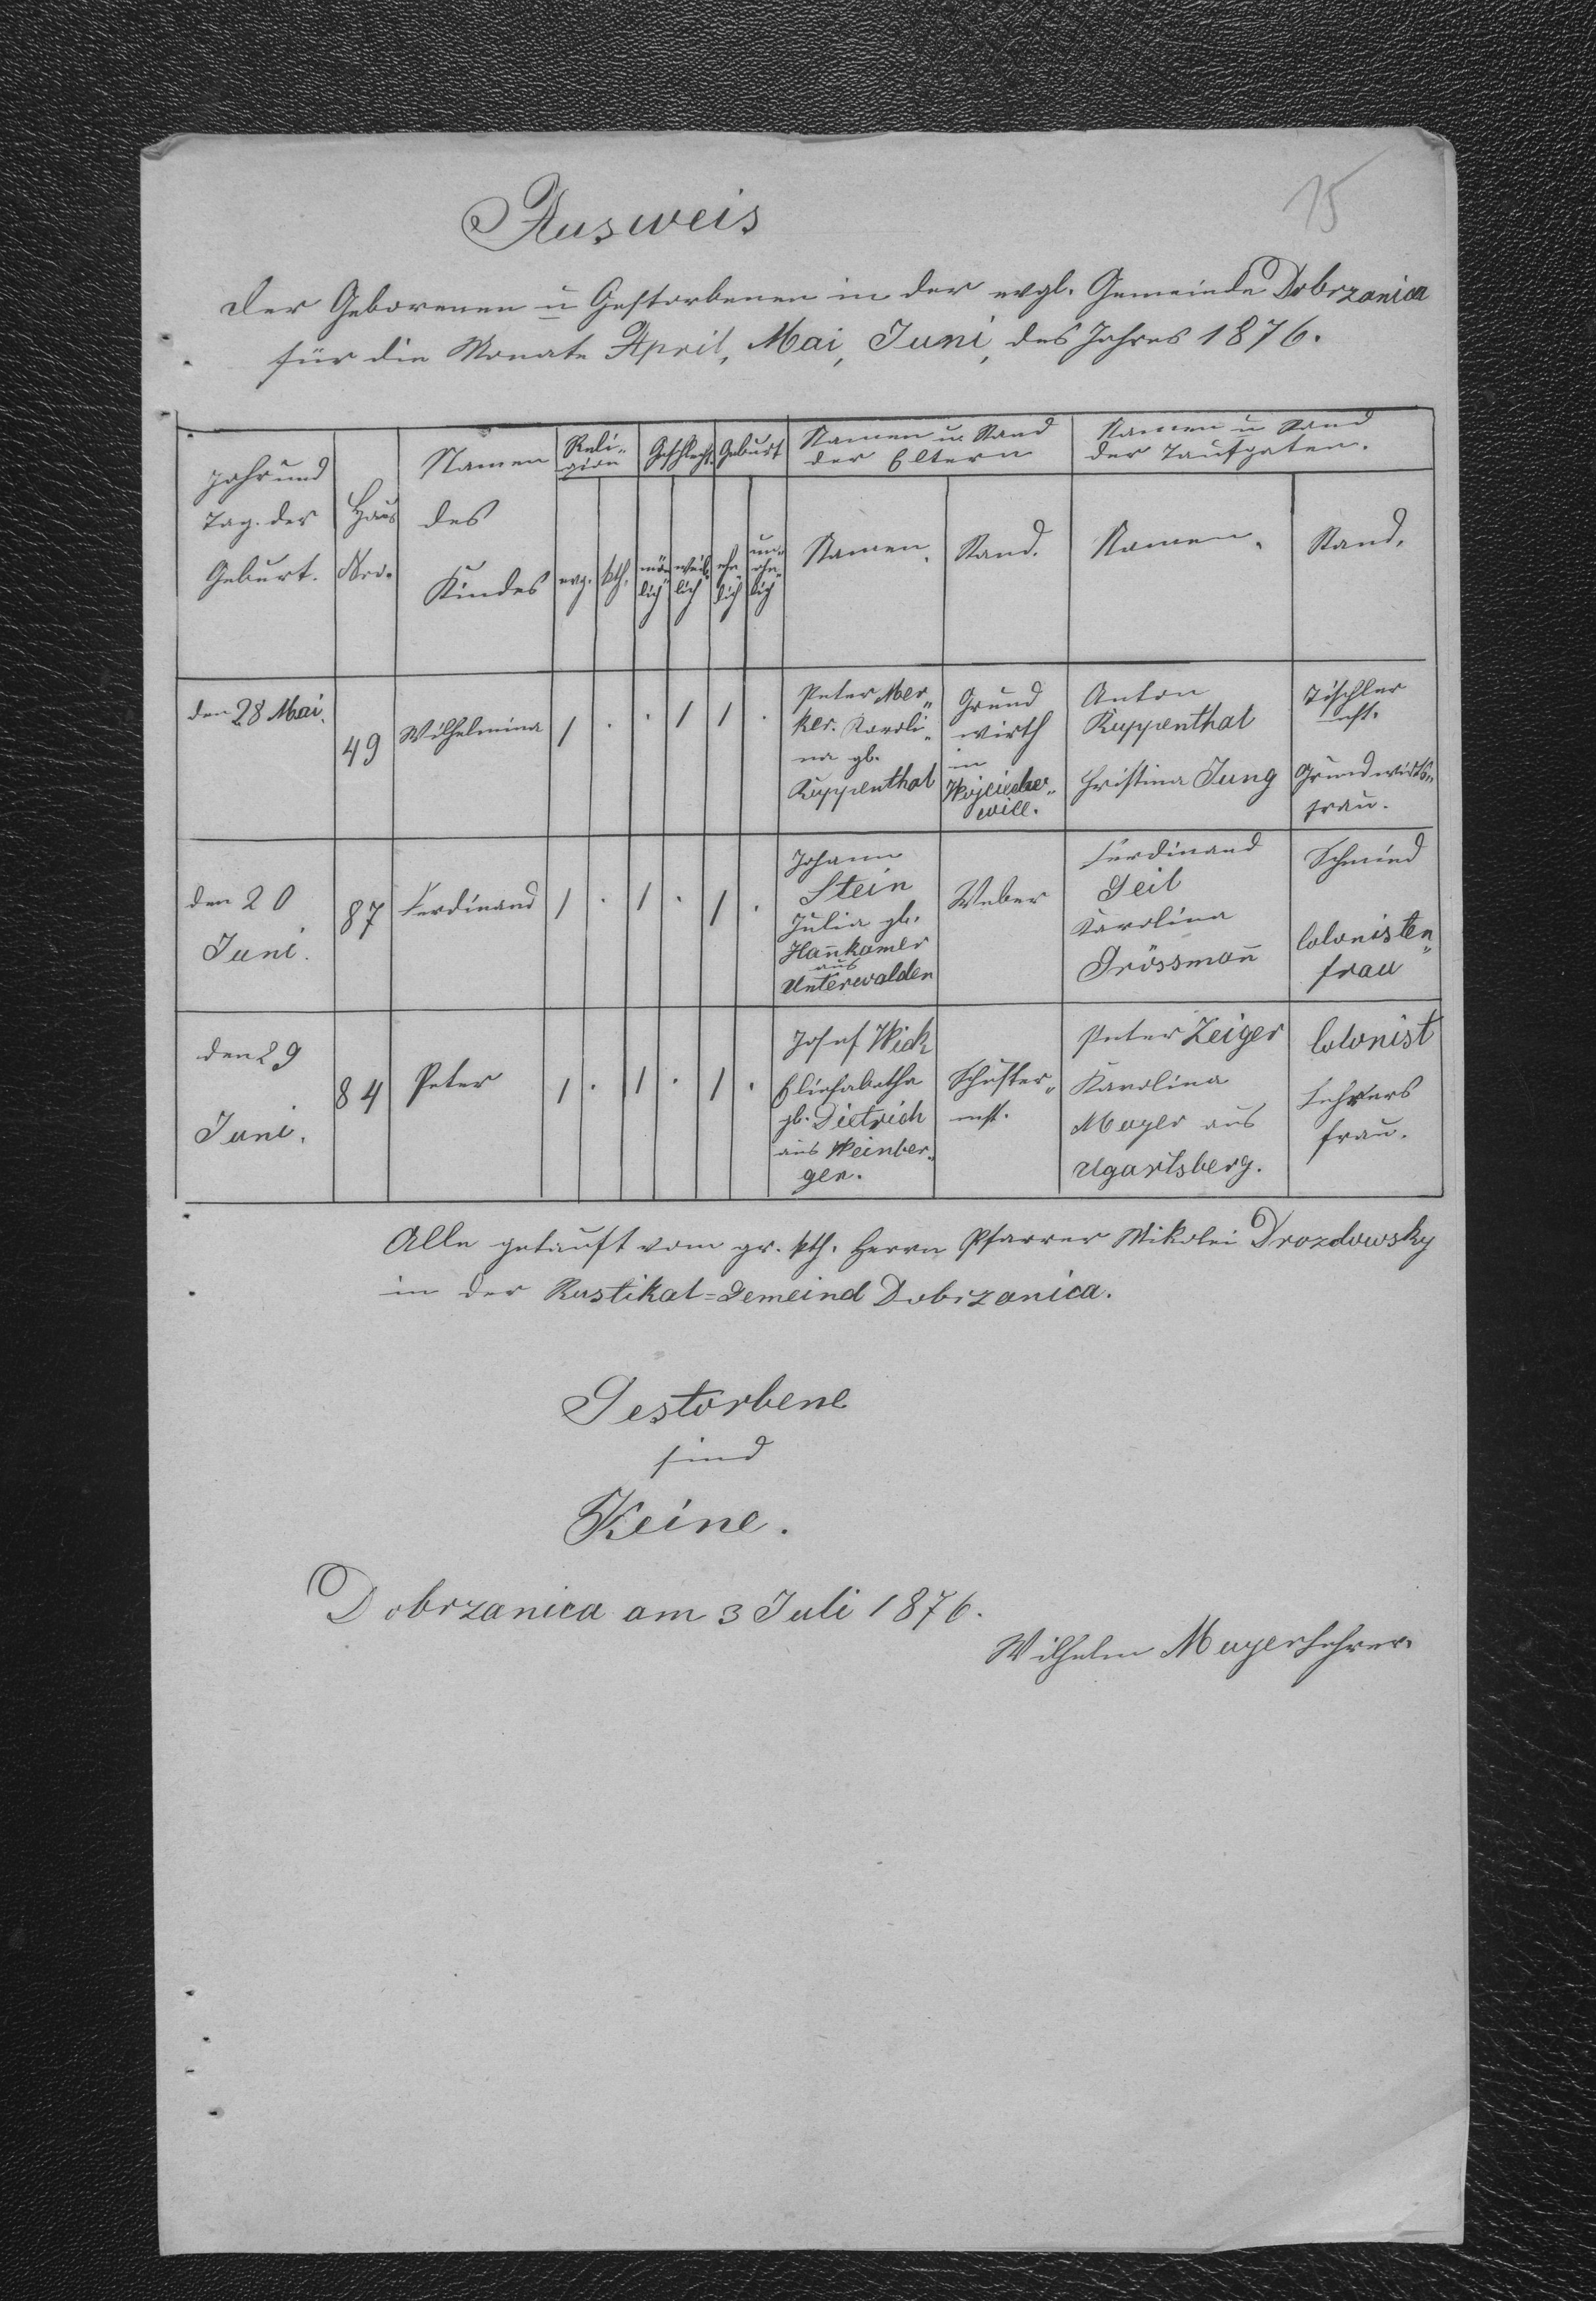 15
Ausweis
der Geborenen u Gestorbenen in der evgl. Gemeinde Dobrzanica
für die Monate April, Mai, Juni, des Jahres 1876.
Jahr und Tag. der Geburt. Haus Nro. Namen des Kindes Religion Geschlecht Geburt Namen u. Stand der Eltern Namen u Stand der Taufpaten.
evg. kth. män„lich weib„lich ehe„lich un„ehe„lich Namen. Stand. Namen. Stand.
den 28 Mai. 49 Wilhelmina 1 . . 1 1 .
Peter Mer„
ker. Karoli„
na gb.
Kuppenthal
Grund
wirth
in
will.
Anton
Kuppenthal
Christina Jung
Tischler
mst.
Grundwirths„
frau.
den 20
Juni.
87 Ferdinand 1 . 1 . 1 .
Johann
Stein
Julia gb.
Han̄kamer
aus
Unterwalden
Weber
Ferdinand
Geil
Karolina
Grössman̄
Schmied
Colonisten„
frau
den 29
Juni.
84 Peter 1 . 1 . 1 .
Josef Wick
Eliesabetha
gb. Dietrich
aus Weinber„
gen.
Schuster„
mst.
Peter Zeiger
Karolina
Mayer aus
Ugartsberg.
Colonist
Lehrers
frau.
Alle getauft vom gr. kth. Herrn Pfarrer Mikolei Drozdowsky
in der Rustikal=Gemeind Dobrzanica.
Gestorbene
sind
Keine.
Dobrzanica am 3 Juli 1876.
Wilhelm Mayer Lehrer.